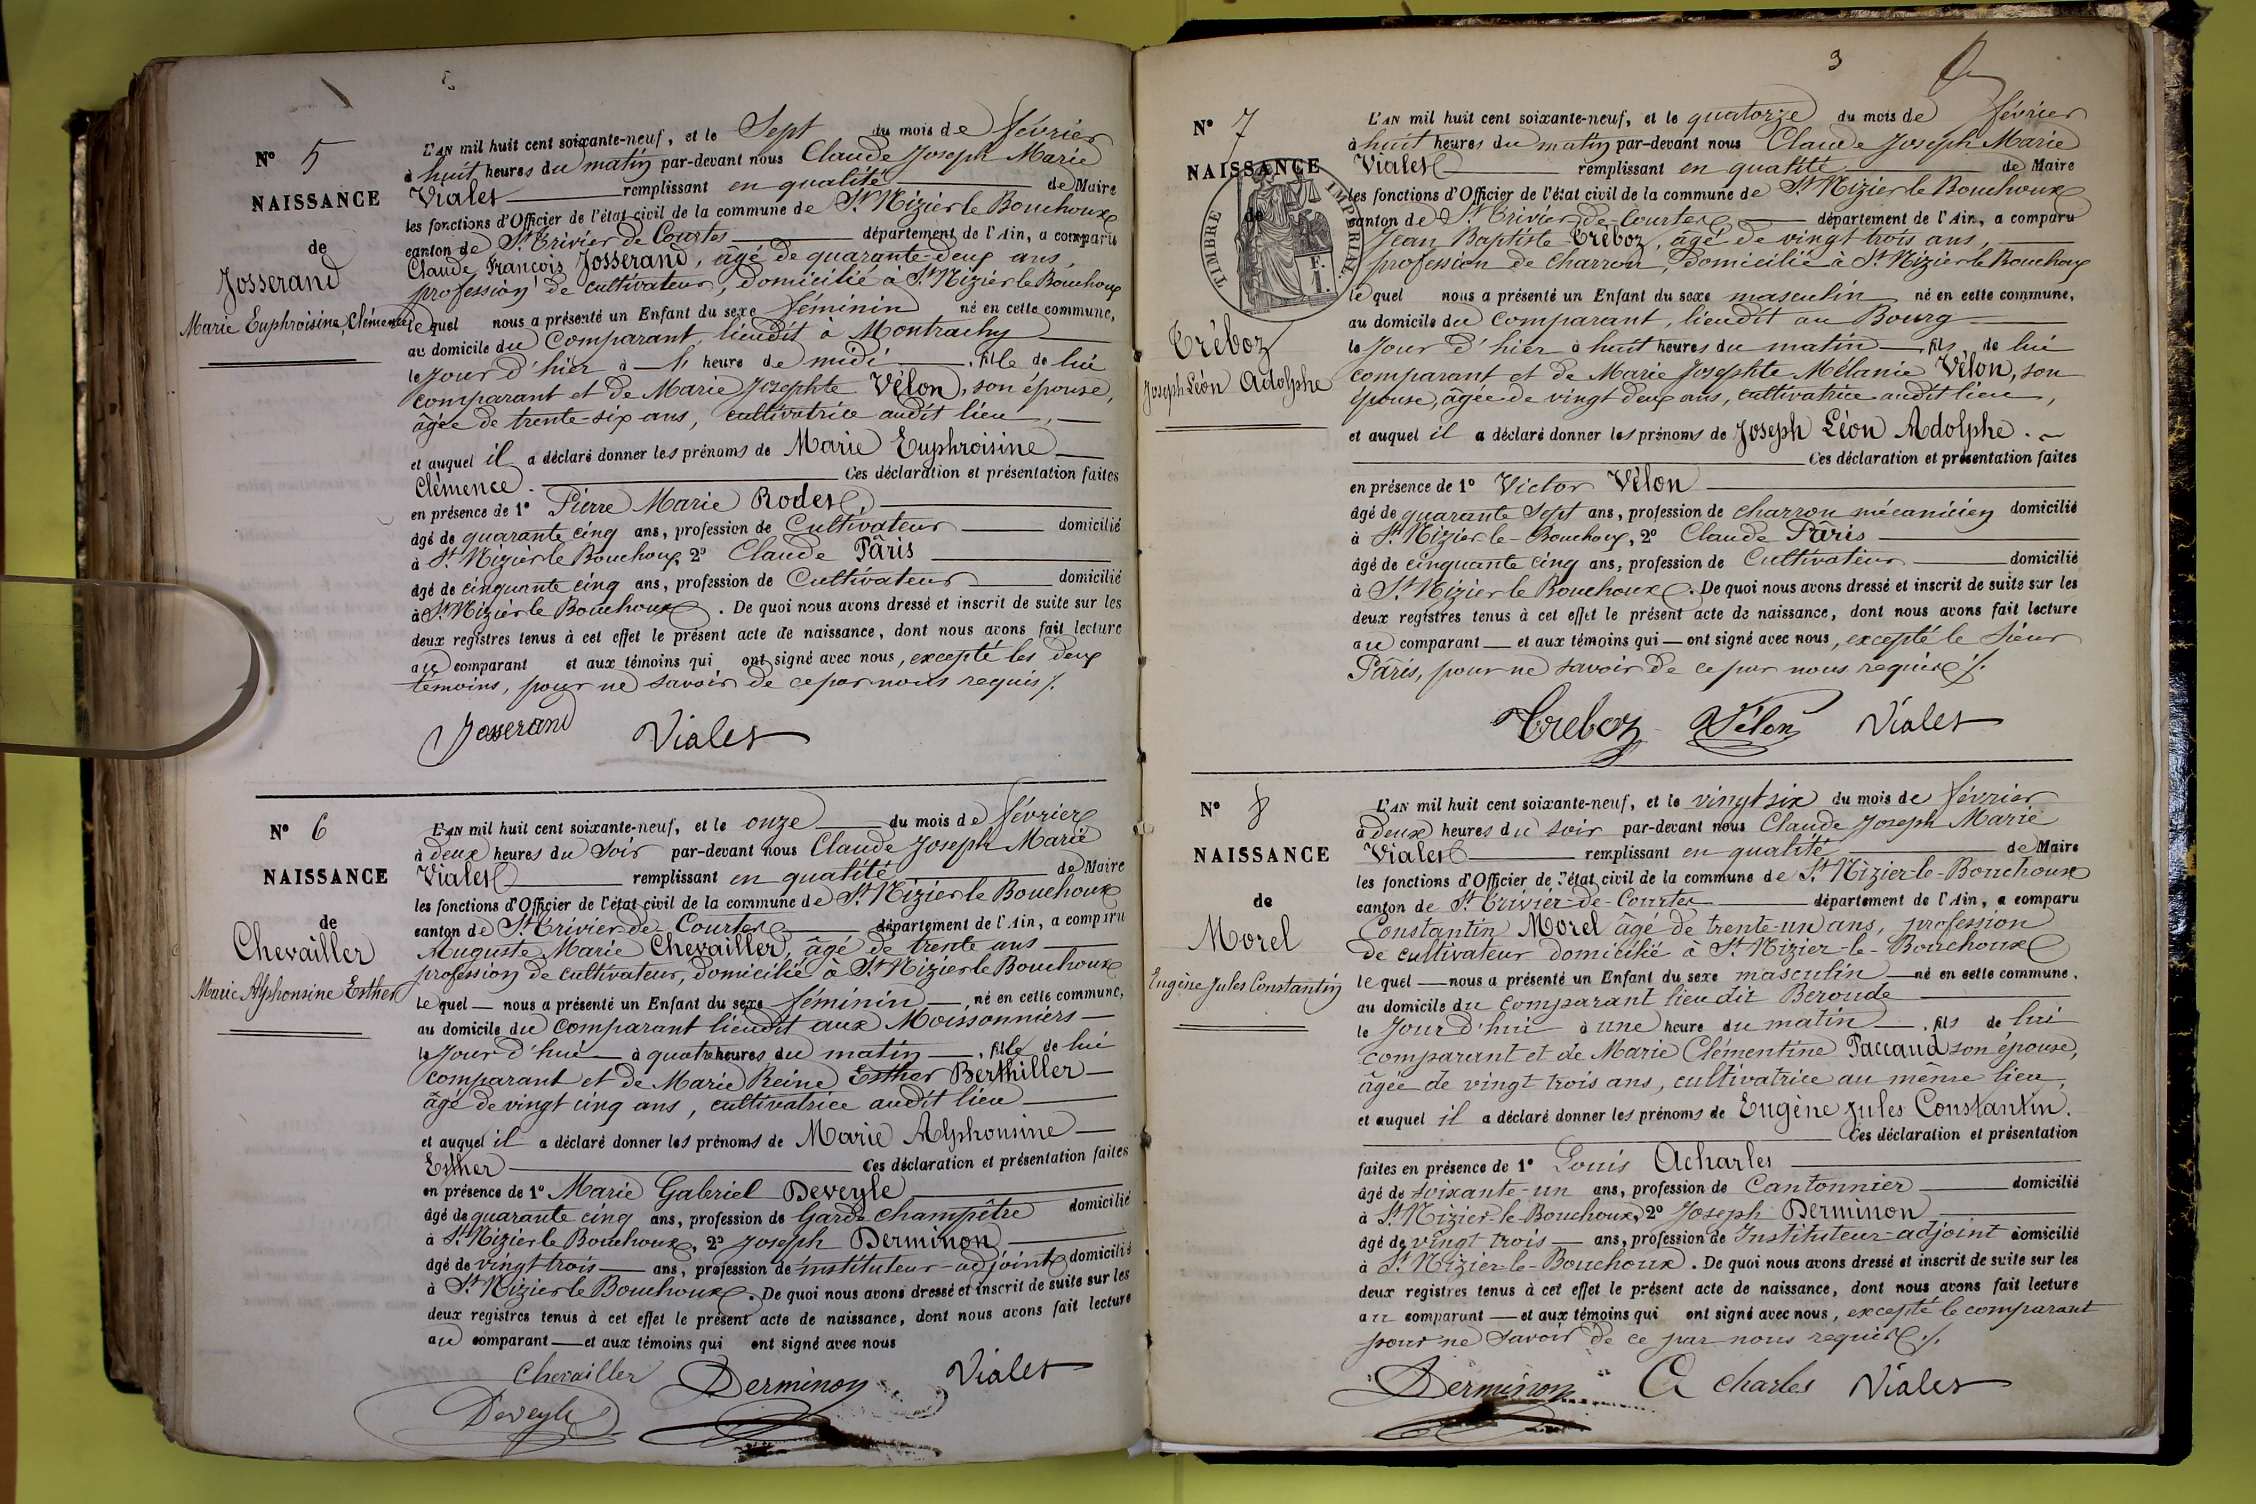 N° 5
NAISSANCE
de
Josserand
Marie Euphroisine Clémence
L'AN mil huit cent soixante-neuf, et le Sept du mois de février
à huit heures du matin par-devant nous Claude Joseph Marie
Vialet remplissant en qualité de Maire
les fonctions d'Officier de l'état civil de la commune de St Nizier le Bouchoux
canton de St Trivier de Courtes département de l'Ain, a comparu
Claude François Josserand, âgé de quarante-deux ans,
profession de cultivateur, domicilié à St Nizier le Bouchoux
le quel nous a présenté un Enfant du sexe féminin né en cette commune,
au domicile du comparant, lieudit à Montrachy
le jour d'hier à heure de midi, fille de lui
comparant et de Marie Josephte Vélon, son épouse,
âgée de trente-six ans, cultivatrice audit lieu,
et auquel il a déclaré donner les prénoms de Marie Euphroisine
Clémence. Ces déclaration et présentation faites
en présence de 1° Pierre Marie Rodet,
âgé de quarante cinq ans, profession de Cultivateur domicilié
à St Nizier le Bouchoux, 2° Claude Pâris
âgé de cinquante cinq ans, profession de Cultivateur domicilié
à St Nizier le Bouchoux. De quoi nous avons dressé et inscrit de suite sur les
deux registres tenus à cet effet le présent acte de naissance, dont nous avons fait lecture
au comparant et aux témoins qui ont signé avec nous, excepté les deux
témoins, pour ne savoir de ce par nous requis ./.
Josserand Vialet
N° 6
NAISSANCE
de
Chevailler
Marie Alphonsine Esther
L'AN mil huit cent soixante-neuf, et le onze du mois de février
à deux heures du soir par-devant nous Claude Joseph Marie
Vialet remplissant en qualité de Maire
les fonctions d'Officier de l'état civil de la commune de St Nizier le Bouchoux
canton de St Trivier-de-Courtes département de l'Ain, a comparu
Auguste Marie Chevailler, âgé de trente ans
profession de cultivateur, domicilié à St Nizier le Bouchoux
le quel — nous a présenté un Enfant du sexe féminin —, né en cette commune,
au domicile du comparant lieudit aux Moissonniers —
le jour d'hui — à quatre heures du matin —, fille de lui
comparant et de Marie Reine Esther Berthiller —
âgé de vingt cinq ans, cultivatrice audit lieu
et auquel il a déclaré donner les prénoms de Marie Alphonsine —
Esther Ces déclaration et présentation faites
en présence de 1° Marie Gabriel Deveyle
âgé de quarante cinq ans, profession de Garde champêtre domicilié
à St Nizier le Bouchoux, 2° Joseph Derminon
âgé de vingt trois — ans, profession de instituteur-adjoint domicilié
à St Nizier le Bouchoux. De quoi nous avons dressé et inscrit de suite sur les
deux registres tenus à cet effet le présent acte de naissance, dont nous avons fait lecture
au comparant — et aux témoins qui ont signé avec nous
Chevailler Derminon Vialet
Deveyle
3
N° 7
NAISSANCE
de
TIMBRE IMPERIAL
F.
1.
Tréboz
Joseph Léon Adolphe
L'AN mil huit cent soixante-neuf, et le quatorze du mois de février
à huit heures du matin par-devant nous Claude Joseph Marie
Vialet remplissant en qualité de Maire
les fonctions d'Officier de l'état civil de la commune de St Nizier le Bouchoux
canton de St Trivier-de-Courtes département de l'Ain, a comparu
Jean Baptiste Tréboz, âgé de vingt trois ans,
profession de charron, domicilié à St Nizier le Bouchoux
le quel nous a présenté un Enfant du sexe masculin né en cette commune,
au domicile du comparant, lieudit au Bourg
le jour d'hier à huit heures du matin —, fils de lui
comparant et de Marie Josephte Mélanie Vélon, son
épouse, âgée de vingt deux ans, cultivatrice audit lieu,
et auquel il a déclaré donner les prénoms de Joseph Léon Adolphe. —
Ces déclaration et présentation faites
en présence de 1° Victor Vélon
âgé de quarante sept ans, profession de charron mécanicien domicilié
à St Nizier-le-Bouchoux, 2° Claude Pâris
âgé de cinquante cinq ans, profession de Cultivateur domicilié
à St Nizier le Bouchoux. De quoi nous avons dressé et inscrit de suite sur les
deux registres tenus à cet effet le présent acte de naissance, dont nous avons fait lecture
au comparant — et aux témoins qui — ont signé avec nous, excepté le sieur
Pâris, pour ne savoir de ce par nous requis ./.
Treboz Vélon Vialet
N° 8
NAISSANCE
de
Morel
Eugène Jules Constantin
L'AN mil huit cent soixante-neuf, et le vingt six du mois de février
à deux heures du soir par-devant nous Claude Joseph Marie
Vialet remplissant en qualité de Maire
les fonctions d'Officier de l'état civil de la commune de St Nizier-le-Bouchoux
canton de St Trivier-de-Courtes département de l'Ain, a comparu
Constantin Morel âgé de trente-un ans, profession
de cultivateur domicilié à St Nizier-le-Bouchoux
le quel — nous a présenté un Enfant du sexe masculin — né en cette commune,
au domicile du comparant lieu dit Beroude
le jour d'hui à une heure du matin —, fils de lui
comparant et de Marie Clémentine Paccaud son épouse,
âgée de vingt trois ans, cultivatrice au même lieu,
et auquel il a déclaré donner les prénoms de Eugène Jules Constantin.
Ces déclaration et présentation
faites en présence de 1° Louis Acharles
âgé de soixante-un ans, profession de Cantonnier domicilié
à St Nizier-le-Bouchoux, 2° Joseph Derminon
âgé de vingt trois — ans, profession de Instituteur-adjoint domicilié
à St Nizier-le-Bouchoux. De quoi nous avons dressé et inscrit de suite sur les
deux registres tenus à cet effet le présent acte de naissance, dont nous avons fait lecture
au comparant — et aux témoins qui ont signé avec nous, excepté le comparant
pour ne savoir de ce par nous requis ./.
Derminon Acharles Vialet